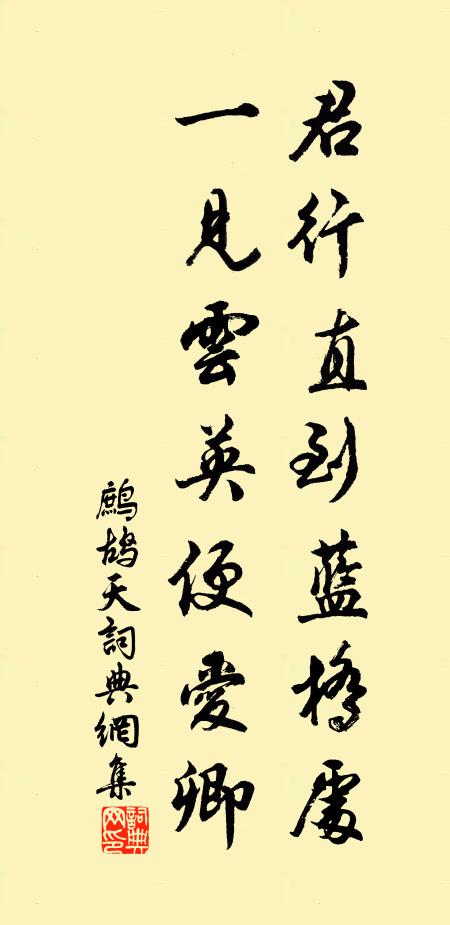 君行直到藍橋處
一見雲英便愛卿
鷓鴣天詞典網集
詞典网印